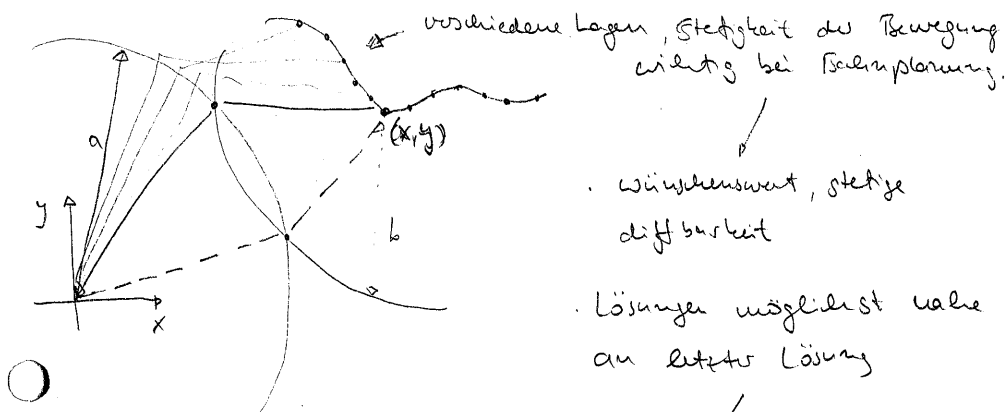 verschiedene Lagen, Stetigkeit der Bewegung
wichtig bei Bahnplanung.
a
(x,y)
y
b
x
· wünschenswert, stetige
diffbarkeit
· Lösungen möglichst nahe
an letzter Lösung